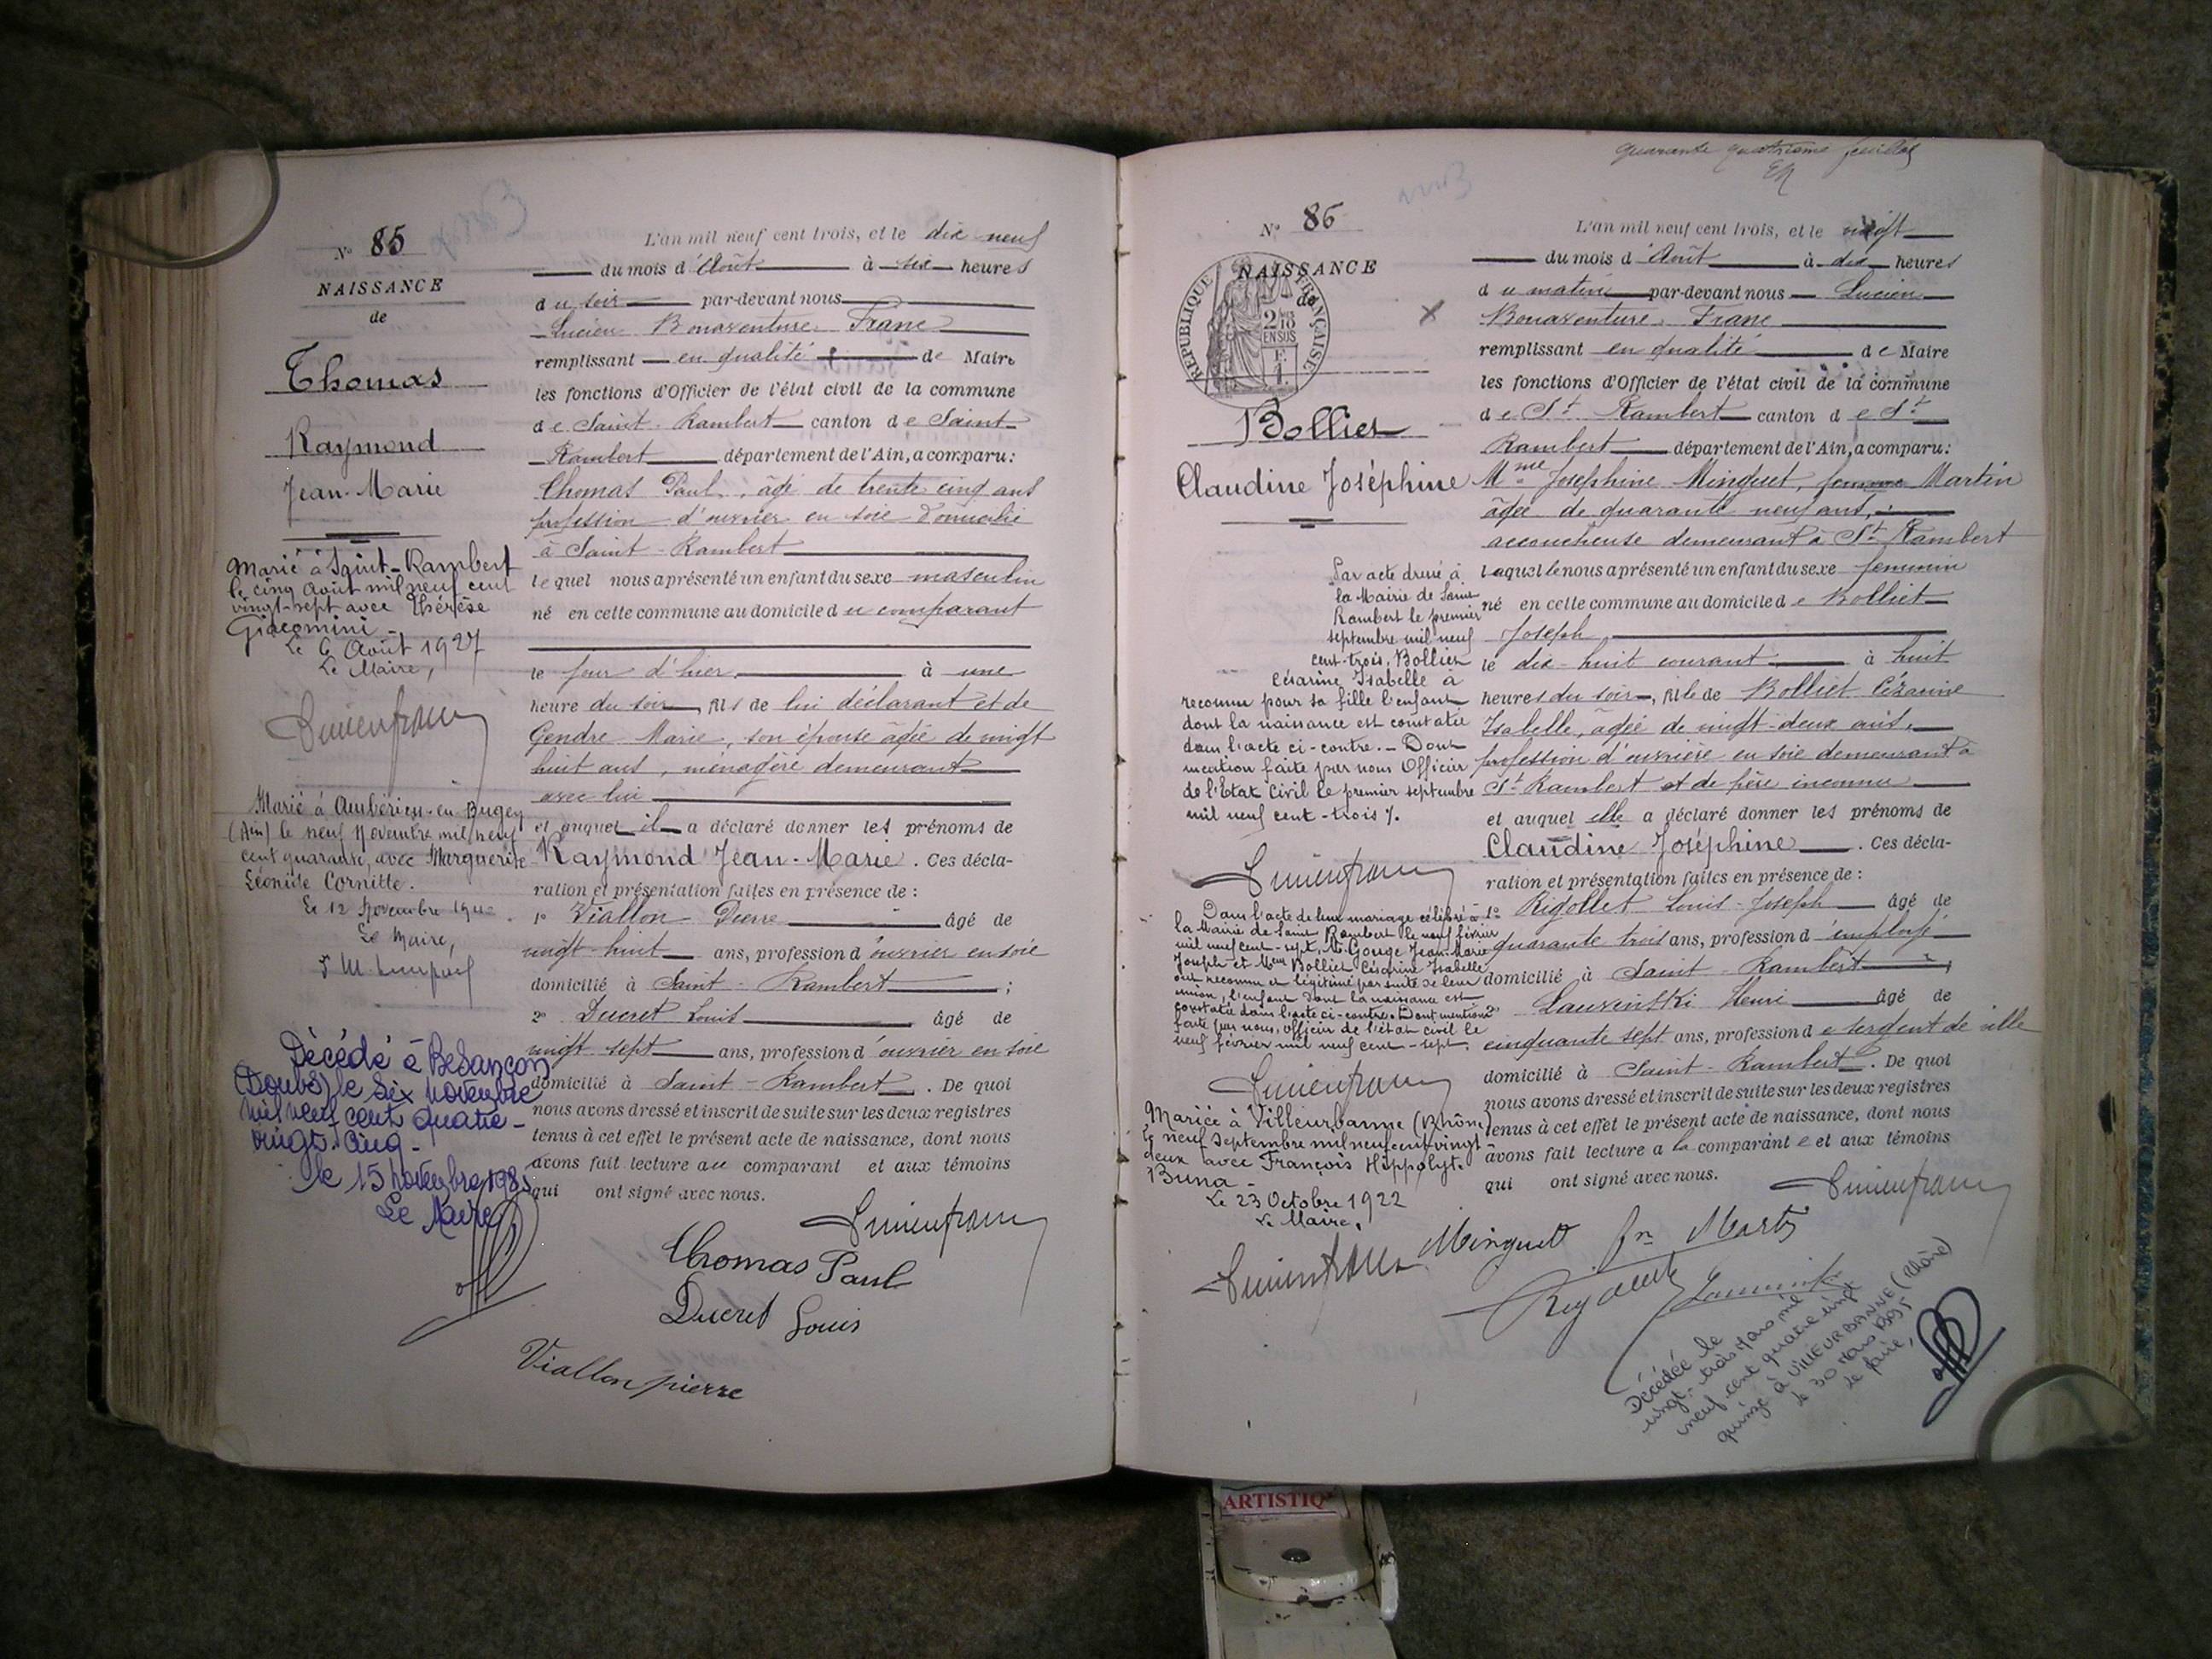 N° 85
NAISSANCE
de
Thomas
Raymond
Jean-Marie
Marié à Saint-Rambert
le cinq Août mil neuf cent
vingt-sept avec Thérèse
Giacomini -
Le 6 Août 1927
Le Maire,
Lucien franc
Marié à Ambérieu-en-Bugey
(Ain) le neuf Novembre mil neuf
cent quarante, avec Marguerite
Léonide Cornitte.
Le 12 Novembre 194
Le Maire,
Décédé à Besançon
(Doubs) le six novembre
mil neuf cent quatre-
vingt-cinq -
le 15 novembre 1985
Le Maire
L'an mil neuf cent trois, et le dix neuf
du mois d'Août à six heures
du soir par-devant nous
Lucien Bonaventure Franc
remplissant en qualité de Maire
les fonctions d'Officier de l'état civil de la commune
de Saint-Rambert canton de Saint-
Rambert département de l'Ain, a comparu:
Thomas Paul, âgé de trente cinq ans
profession d'ouvrier en soie domicilié
à Saint-Rambert
lequel nous a présenté un enfant du sexe masculin
né en cette commune au domicile du comparant
le jour d'hier à une
heure du soir, fils de lui déclarant et de
Gendre Marie, son épouse âgée de vingt
huit ans, ménagère demeurant
avec lui
et auquel il a déclaré donner les prénoms de
Raymond Jean-Marie. Ces décla-
ration et présentation faites en présence de :
1° Viallon Pierre âgé de
vingt-huit ans, profession d'ouvrier en soie
domicilié à Saint-Rambert ;
2° Ducret Louis âgé de
vingt sept ans, profession d'ouvrier en soie
domicilié à Saint-Rambert. De quoi
nous avons dressé et inscrit de suite sur les deux registres
tenus à cet effet le présent acte de naissance, dont nous
avons fait lecture au comparant et aux témoins
qui ont signé avec nous.
Lucien franc
Thomas Paul
Ducret Louis
Viallon pierre
quarante quatrième feuillet
N° 86
NAISSANCE
de
RÉPUBLIQUE FRANÇAISE
2/10
EN SUS
Bollier
Claudine Joséphine
Par acte dressé à
la Mairie de Saint
Rambert le premier
septembre mil neuf
cent-trois, Bollier
Césarine Isabelle a
reconnu pour sa fille l'enfant
dont la naissance est constatée
dans l'acte ci-contre. - Dont
mention faite par nous Officier
de l'Etat Civil le premier septembre
mil neuf cent-trois /.
Lucien franc
Dans l'acte de leur mariage célébré à
la Mairie de Saint Rambert le neuf février
mil neuf cent-sept, Mr Gouge Jean-Marie
Joseph et Melle Bolliet Césarine Isabelle
ont reconnu et légitimé par suite de leur
union, l'enfant dont la naissance est
constatée dans l'acte ci-contre. Dont mention
faite par nous, officier de l'état civil le
neuf février mil neuf cent-sept.
Lucien franc
Mariée à Villeurbanne (Rhône)
le neuf septembre mil neuf cent vingt
deux avec François Hippolyte
Buna -
Le 23 Octobre 1922
Le Maire,
Lucien franc
L'an mil neuf cent trois, et le vingt
du mois d'Août à dix heures
du matin par-devant nous Lucien
Bonaventure Franc
remplissant en qualité de Maire
les fonctions d'Officier de l'état civil de la commune
de St Rambert canton de St
Rambert département de l'Ain, a comparu:
Mme Joséphine Minguet, femme Martin
âgée de quarante neuf ans,
accoucheuse demeurant à St Rambert
laquelle nous a présenté un enfant du sexe feminin
né en cette commune au domicile de Bolliet
Joseph
le dix-huit courant à huit
heures du soir, fille de Bolliet Césarine
Isabelle, âgée de vingt-deux ans,
profession d'ouvrière en soie demeurant à
St Rambert et de père inconnu
et auquel elle a déclaré donner les prénoms de
Claudine Joséphine. Ces décla-
ration et présentation faites en présence de :
1° Rigollet Louis-Joseph âgé de
quarante trois ans, profession d'employé
domicilié à Saint-Rambert ;
2° Henri âgé de
cinquante sept ans, profession de sergent de ville
domicilié à Saint-Rambert. De quoi
nous avons dressé et inscrit de suite sur les deux registres
tenus à cet effet le présent acte de naissance, dont nous
avons fait lecture a la comparante et aux témoins
qui ont signé avec nous.
Lucien franc
Minguett fe Martin
Rigollet
Décédée le
vingt-trois Mars mil
neuf cent quatre vingt
quinze à VILLEURBANNE (Rhône)
le 30 Mars 1995
Le Maire,
ARTISTIQ